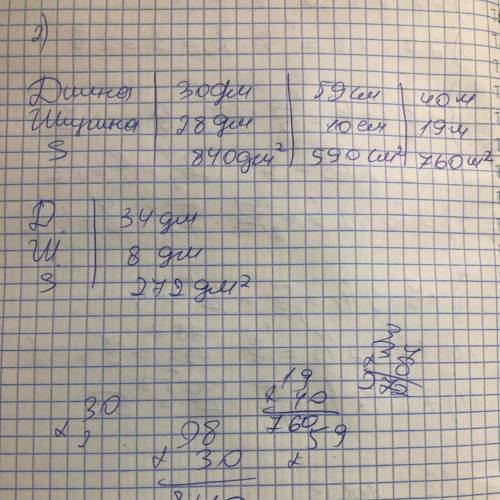 2)
Длина 30дм 59см 40м
Ширина 28дм 10см 19м
S 840дм² 590см² 760м²
Д. 34дм
Ш. 8 дм
S 272дм²
19
x 40
760
30
x
98
x 30
59
x